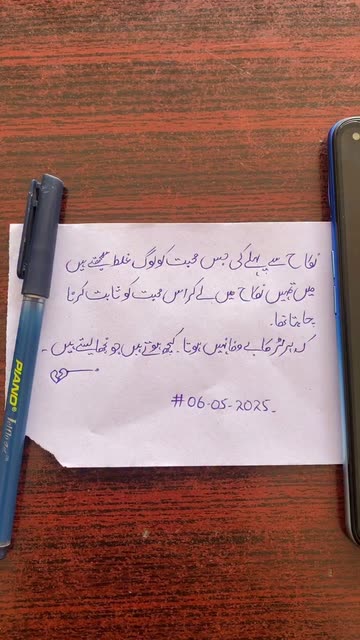 نکاح سے پہلے کی جس محبت کو لوگ غلط سمجھتے ہیں
میں تمہیں نکاح میں لے کر اس محبت کو ثابت کرنا
چاہتا تھا۔
کہ ہر لڑکا بے وفا نہیں ہوتا۔ کچھ ہوتے ہیں جو نبھا لیتے ہیں۔
#06-05-2025.
PIANO